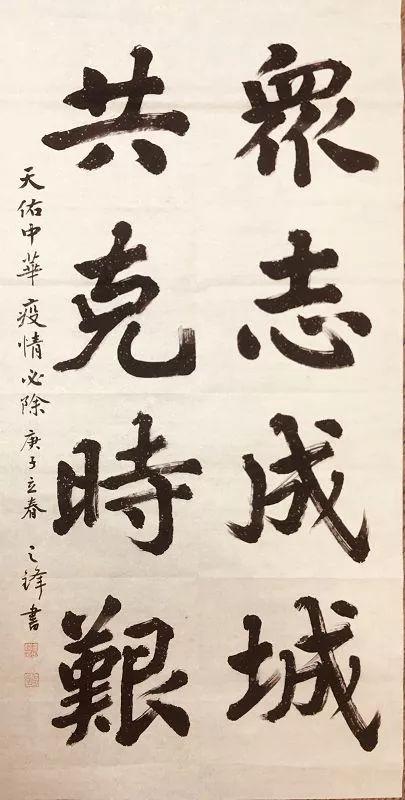 眾志成城
共克時艱
天佑中華 疫情必除 庚子立春 之鋒書